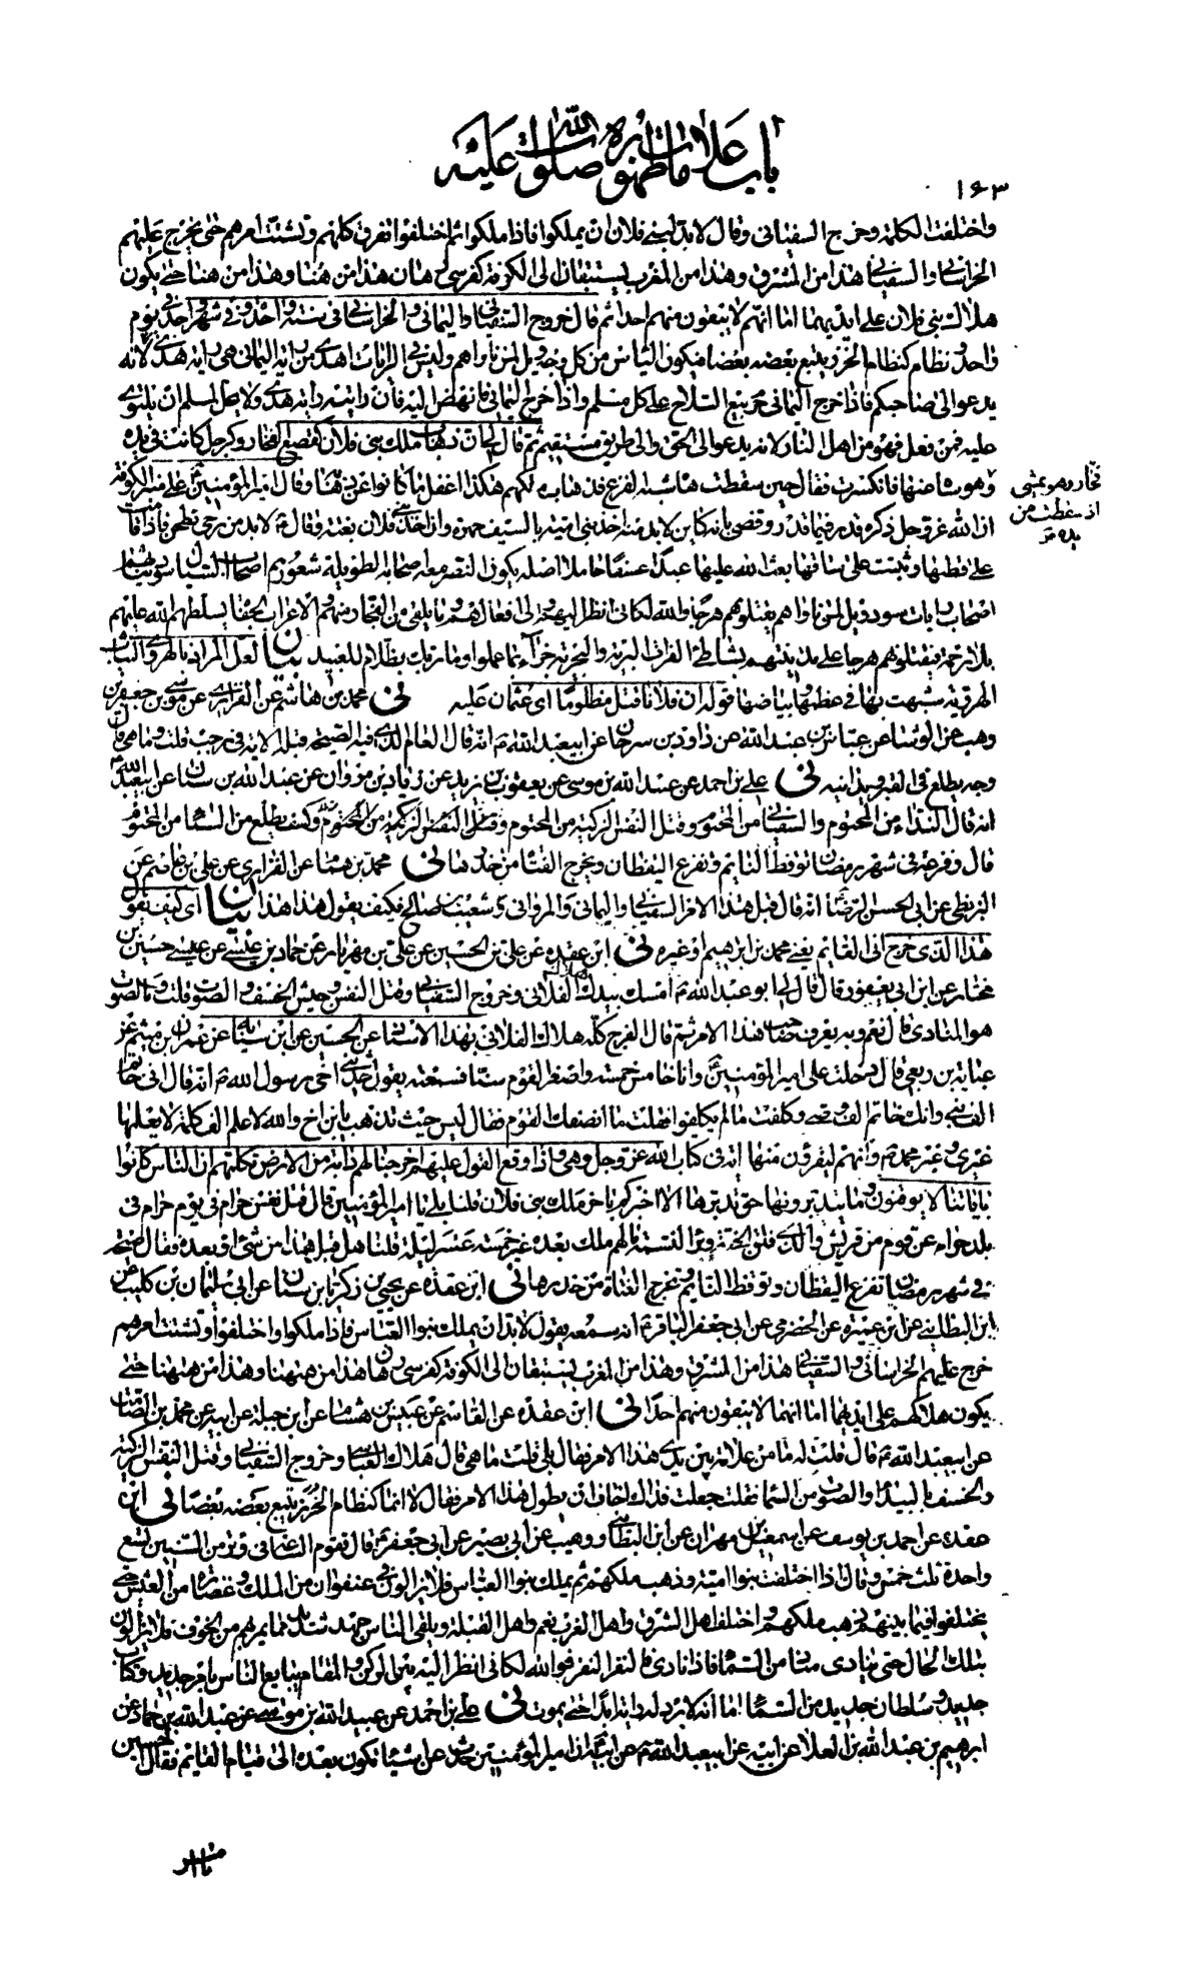 باب علامات ظهوره صلوات الله عليه
١٦٣
واختلفت الكلمة وخرج السفياني وقال لا بد لبني فلان ان يملكوا فاذا ملكوا ثم اختلفوا تفرق كلهم وتشتت امرهم حتى يخرج عليهم
الخراساني والسفياني هذا من المشرق وهذا من المغرب يستبقان الى الكوفة كفرسي رهان هذا من هنا وهذا من هنا حتى يكون
هلاك بني فلان على ايديهما اما انهم لا يبقون منهم احدا ثم قال خروج السفياني واليماني والخراساني في سنة واحدة وفي شهر واحد في يوم
واحد ونظام كنظام الخرز يتبع بعضه بعضا فيكون الباس من كل وجه ويل لمن ناواهم وليس في الرايات اهدى من راية اليماني هي راية هدى لانه
يدعو الى صاحبكم فاذا خرج اليماني حرم بيع السلاح على كل مسلم واذا خرج اليماني فانهض اليه فان رايته راية هدى ولا يحل لمسلم ان يلتوي
عليه فمن فعل فهو من اهل النار لانه يدعو الى الحق والى طريق مستقيم ثم قال لي ان ذهاب ملك بني فلان كقصع الفخار وكرجل كانت في يده
فخارة وهو يمشي
اذ سقطت من
يده
ان الله عز وجل ذكره قدر فيما قدر وقضى بانه كاين لا بد منه اخذ بني امية بالسيف جهرة وان اخذ فلان بغتة وقال ع لا بد من رحى تطحن فاذا قامت
على قطبها وثبتت على ساقها بعث الله عليها عبدا عنيفا خاملا اصله يكون النصر معه اصحابه الطويلة شعورهم اصحاب السبال سود ثيابهم
اصحاب رايات سود ويل لمن ناواهم يقتلونهم هرجا والله لكاني انظر اليهم والى افعالهم وما يلقى من الفجار منهم والاعراب الجفاة يسلطهم الله عليهم
بلا رحمة فيقتلونهم هرجا على مدينتهم بشاطئ الفرات البرية والبحرية جزاء بما عملوا وما ربك بظلام للعبيد بيان
قوله ان فلانا قتل مظلوما اى عثمان عليه نى محمد بن هشام عن الفزاري عن موسى بن جعفر بن
وهب عن الوشا عن عباس بن عبد الله عن داود بن سرحان عن ابيعبد الله ع انه قال العام الذي فيه الصيحة قبله الاية في رجب قلت وما هي قال
وجه يطلع في القمر ويد بارزة نى علي بن احمد عن عبيد الله بن موسى عن يعقوب بن يزيد عن زياد بن مروان عن عبد الله بن سنان عن ابيعبد الله ع
انه قال النداء من المحتوم والسفياني من المحتوم وقتل النفس الزكية من المحتوم وكف يطلع من السماء من المحتوم
قال وفزعة في شهر رمضان توقظ النايم وتفزع اليقظان وتخرج الفتاة من خدرها نى محمد بن همام عن الفزاري عن علي بن عاصم عن
البزنطي عن ابي الحسن الرضا ع انه قال قبل هذا الامر السفياني واليماني والمرواني وشعيب بن صالح فكيف يقول هذا هذا بيان اى كيف يقول
هذا الذي خرج انى القايم يعني محمد بن ابراهيم او غيره نى ابن عقدة عن علي بن الحسين عن علي بن مهزيار عن حماد بن عيسى عن
مختار عن ابن ابي يعفور قال قال لي ابو عبد الله ع امسك بيدك هلاك الفلاني وخروج السفياني وقتل النفس وجيش الخسف والصوت قلت وما الصوت
هو المنادى قال نعم وبه يعرف صاحب هذا الامر ثم قال الفرج كله هلاك الفلاني
عباية بن ربعي قال دخلت على امير المؤمنين ع وانا خامس خمسة واصغر القوم سنا فسمعته يقول حدثني اخي رسول الله ص انه قال اني خاتم
الف نبي وانك خاتم الف وصي وكلفت ما لم يكلفوا فقلت ما انصفك القوم فقال ليس حيث تذهب يا بن اخ والله لاعلم الف كلمة لا يعلمها
غيري وغير محمد ص وانهم ليقرؤن منها اية في كتاب الله عز وجل وهي واذا وقع القول عليهم اخرجنا لهم دابة من الارض تكلمهم ان الناس كانوا
باياتنا لا يوقنون وما يتدبرونها حق تدبرها الا اخبركم باخر ملك بني فلان قلنا بلى يا امير المؤمنين قال قتل نفس حرام في يوم حرام في
بلد حرام عن قوم من قريش والذي فلق الحبة وبرا النسمة ما لهم ملك بعده غير خمسة عشر ليلة قلنا هل قبل هذا من شئ او بعده فقال صيحة
في شهر رمضان تفزع اليقظان وتوقظ النايم وتخرج الفتاة من خدرها نى ابن عقدة عن يحيى بن زكريا بن شيبان عن ابي سليمان بن كليب عن
ابن البطايني عن ابن عميرة عن الحضرمي عن ابي جعفر الباقر ع انه سمعه يقول لا بد ان يملك بنو العباس فاذا ملكوا واختلفوا وتشتت امرهم
خرج عليهم الخراساني والسفياني هذا من المشرق وهذا من المغرب يستبقان الى الكوفة كفرسي رهان هذا من ههنا وهذا من ههنا حتى
يكون هلاكهم على ايديهما اما انهما لا يبقون منهم احدا نى ابن عقدة عن القاسم عن عبيس بن هشام عن ابن جبلة عن ابيه عن محمد بن الصامت
عن ابيعبد الله ع قال قلت له ما من علامة بين يدي هذا الامر فقال بلى قلت ما هي قال هلاك العباسي وخروج السفياني وقتل النفس الزكية
والخسف بالبيداء والصوت من السماء فقلت جعلت فداك اخاف ان يطول هذا الامر فقال لا انما كنظام الخرز يتبع بعضه بعضا نى ابن
عقدة عن احمد بن يوسف عن اسمعيل بن مهران عن ابن البطايني ووهيب عن ابي بصير عن ابي جعفر ع قال يقوم القايم في وتر من السنين تسع
واحدة ثلث خمس وقال اذا اختلفت بنو امية وذهب ملكهم ثم يملك بنو العباس فلا يزالون في عنفوان من الملك وغضارة من العيش حتى
يختلفوا فيما بينهم فاذا اختلفوا ذهب ملكهم واختلف اهل الشرق واهل الغرب نعم واهل القبلة ويلقى الناس جهد شديد مما يمر بهم من الخوف فلا يزالون
بتلك الحال حتى ينادي مناد من السماء فاذا نادى فالنفر النفر فوالله لكاني انظر اليه بين الركن والمقام يبايع الناس بامر جديد وكتاب
جديد وسلطان جديد من السماء اما انه لا يرد له راية ابدا حتى يموت نى علي بن احمد عن عبيد الله بن موسى عن عبد الله بن حماد عن
ابرهيم بن عبد الله بن العلا عن ابيه عن ابيعبد الله ع ان امير المؤمنين ع حدث عن اشياء تكون بعده الى قيام القايم فقال الحسين
يا امير